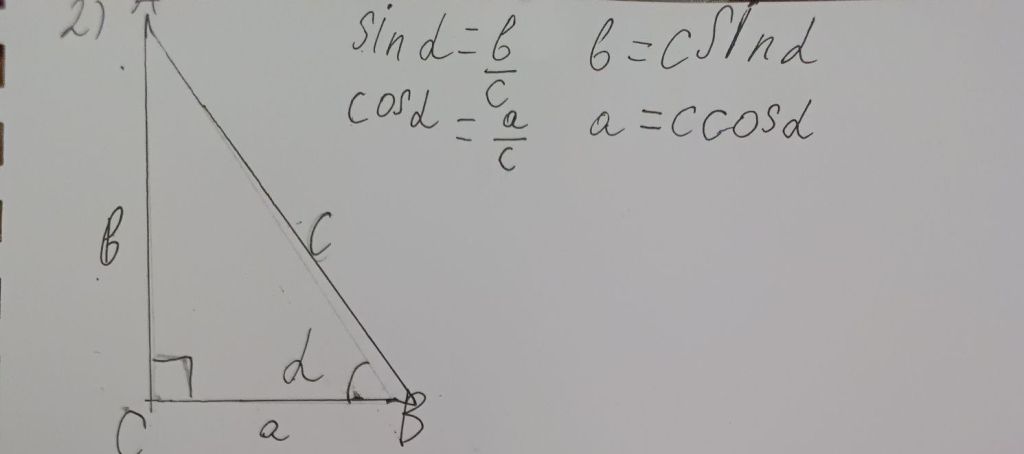 2) A
sin α = b/c   b = c sin α
cos α = a/c   a = c cos α
b
c
α
C
a
B